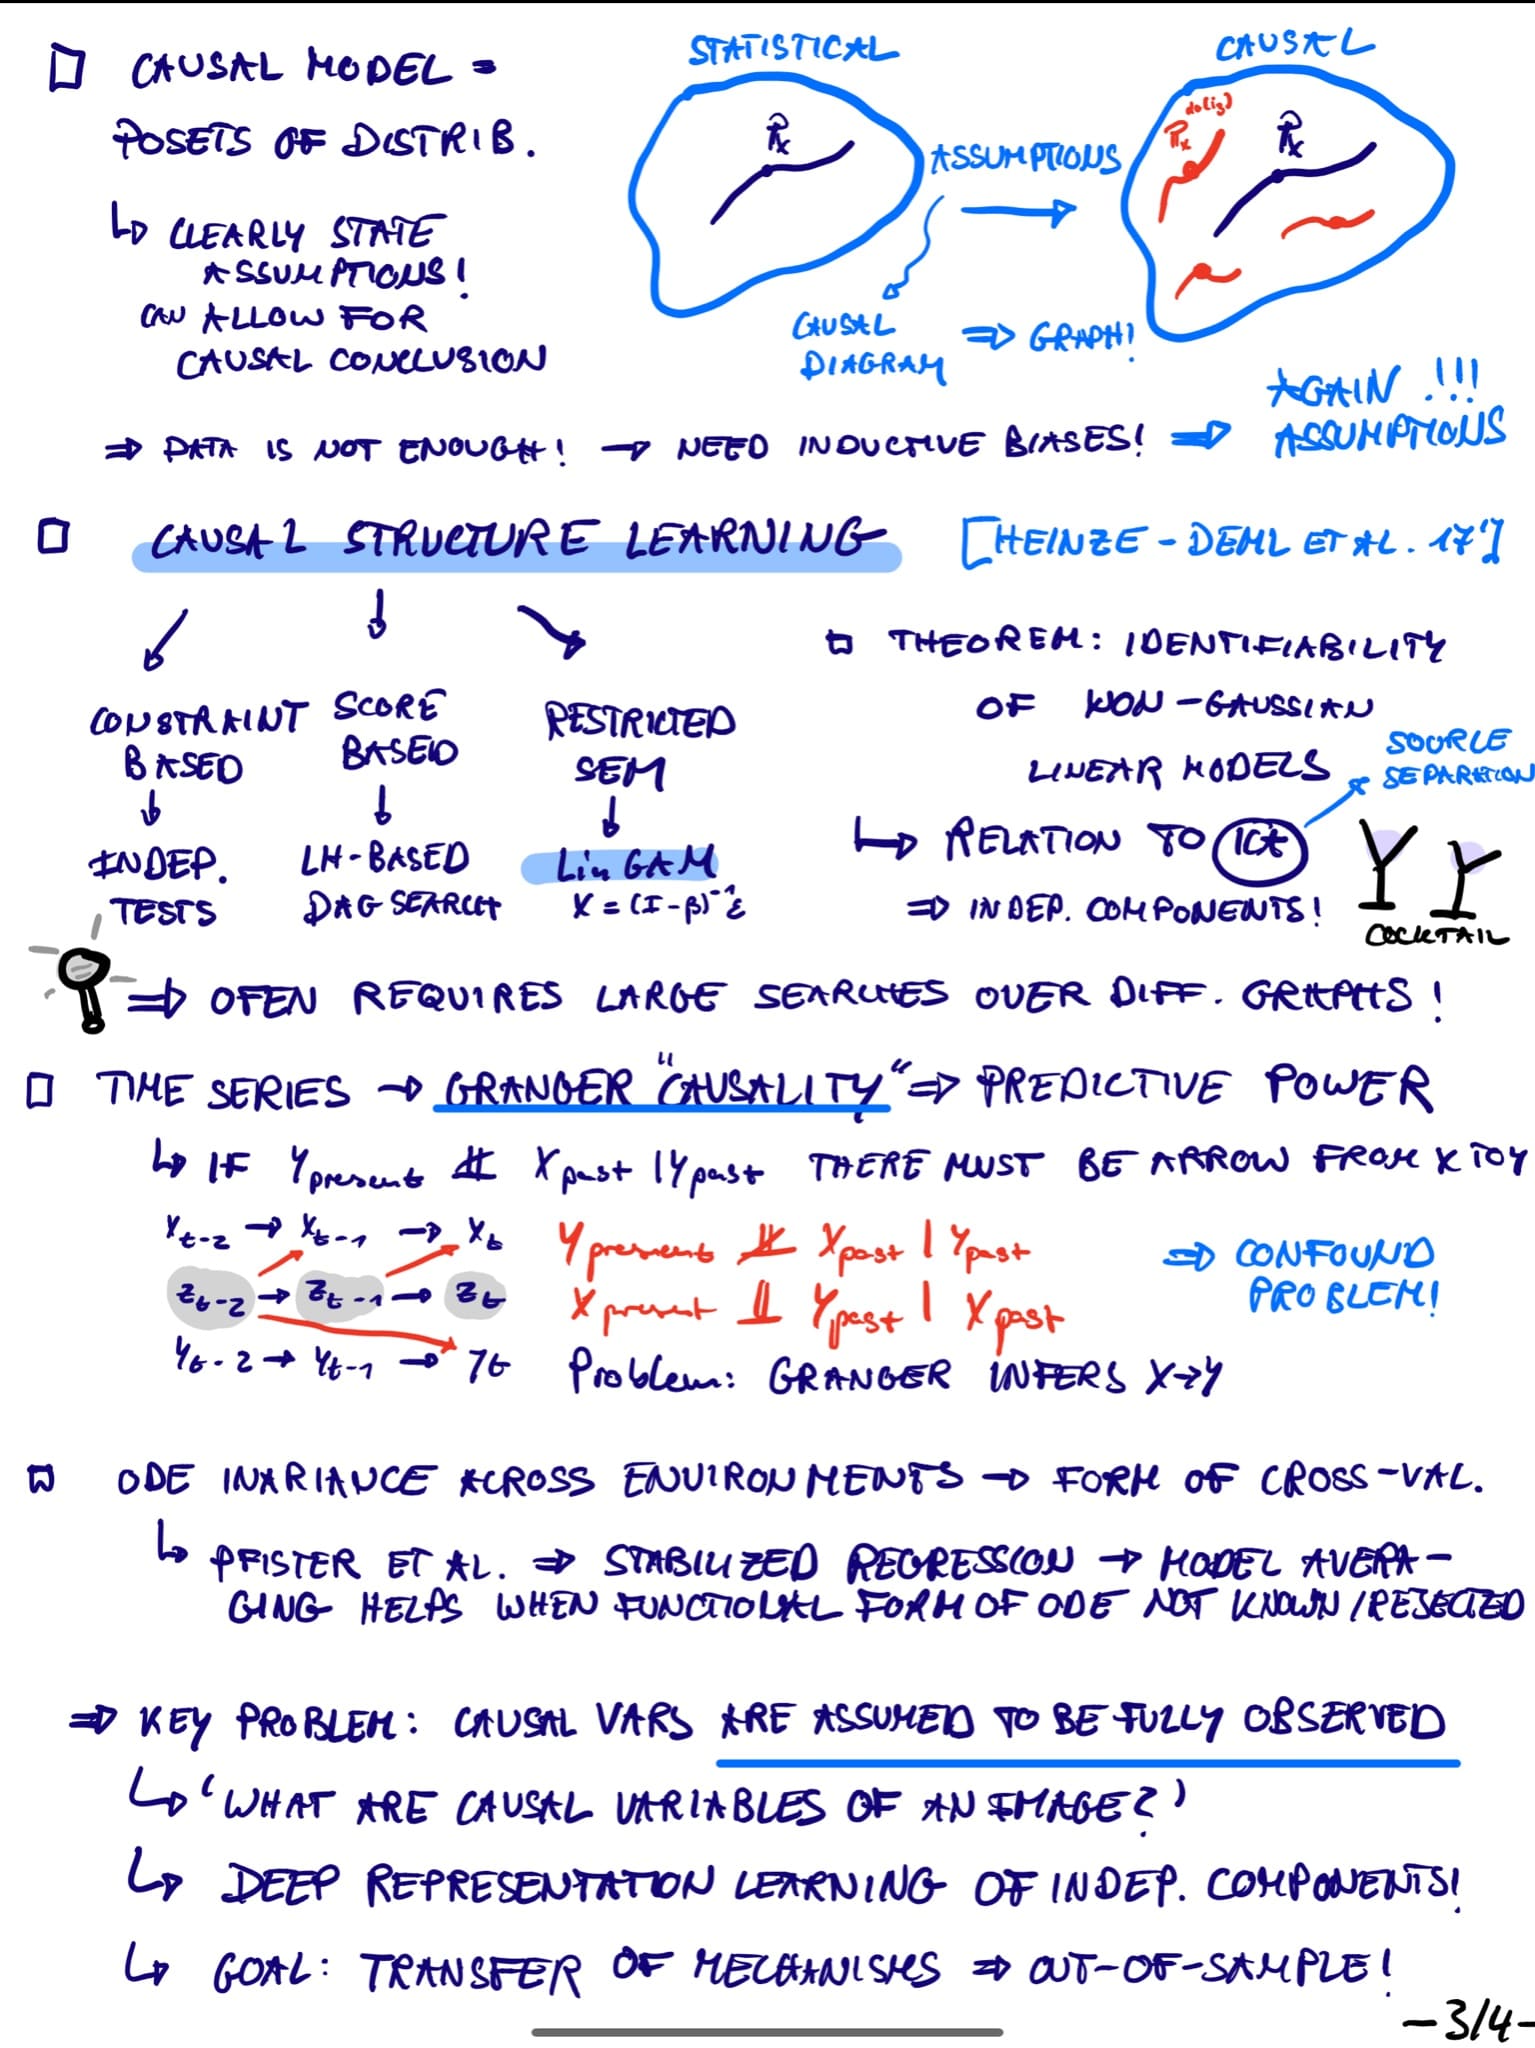 CAUSAL MODEL =
POSETS OF DISTRIB.
↳ CLEARLY STATE
ASSUMPTIONS!
CAN ALLOW FOR
CAUSAL CONCLUSION
STATISTICAL
P̂x
ASSUMPTIONS
CAUSAL
DIAGRAM
⇒ GRAPH!
CAUSAL
do(ig)
P̂x
P̂x
⇒ DATA IS NOT ENOUGH! → NEED INDUCTIVE BIASES! ⇒
AGAIN !!!
ASSUMPTIONS
CAUSAL STRUCTURE LEARNING [HEINZE-DEML ET AL. 17']
CONSTRAINT
BASED
↓
INDEP.
TESTS
SCORE
BASED
↓
LH-BASED
DAG SEARCH
RESTRICTED
SEM
↓
LinGAM
X = (I-β)⁻¹ε
THEOREM: IDENTIFIABILITY
OF NON-GAUSSIAN
LINEAR MODELS
SOURCE
SEPARATION
↳ RELATION TO ICA
⇒ INDEP. COMPONENTS!
COCKTAIL
⇒ OFEN REQUIRES LARGE SEARCHES OVER DIFF. GRAPHS!
TIME SERIES → GRANGER "CAUSALITY" ⇒ PREDICTIVE POWER
↳ IF Ypresent ⫫̸ Xpast | Ypast THERE MUST BE ARROW FROM X TO Y
Xt-2 → Xt-1 → Xt
Zt-2 → Zt-1 → Zt
Yt-2 → Yt-1 → Yt
Ypresent ⫫̸ Xpast | Ypast
Xpresent ⫫ Ypast | Xpast
⇒ CONFOUND
PROBLEM!
Problem: GRANGER INFERS X→Y
ODE INVARIANCE ACROSS ENVIRONMENTS → FORM OF CROSS-VAL.
↳ PFISTER ET AL. ⇒ STABILIZED REGRESSION → MODEL AVERA-
GING HELPS WHEN FUNCTIONAL FORM OF ODE NOT KNOWN/REJECTED
⇒ KEY PROBLEM: CAUSAL VARS ARE ASSUMED TO BE FULLY OBSERVED
↳ 'WHAT ARE CAUSAL VARIABLES OF AN IMAGE?'
↳ DEEP REPRESENTATION LEARNING OF INDEP. COMPONENTS!
↳ GOAL: TRANSFER OF MECHANISMS ⇒ OUT-OF-SAMPLE!
-3/4-